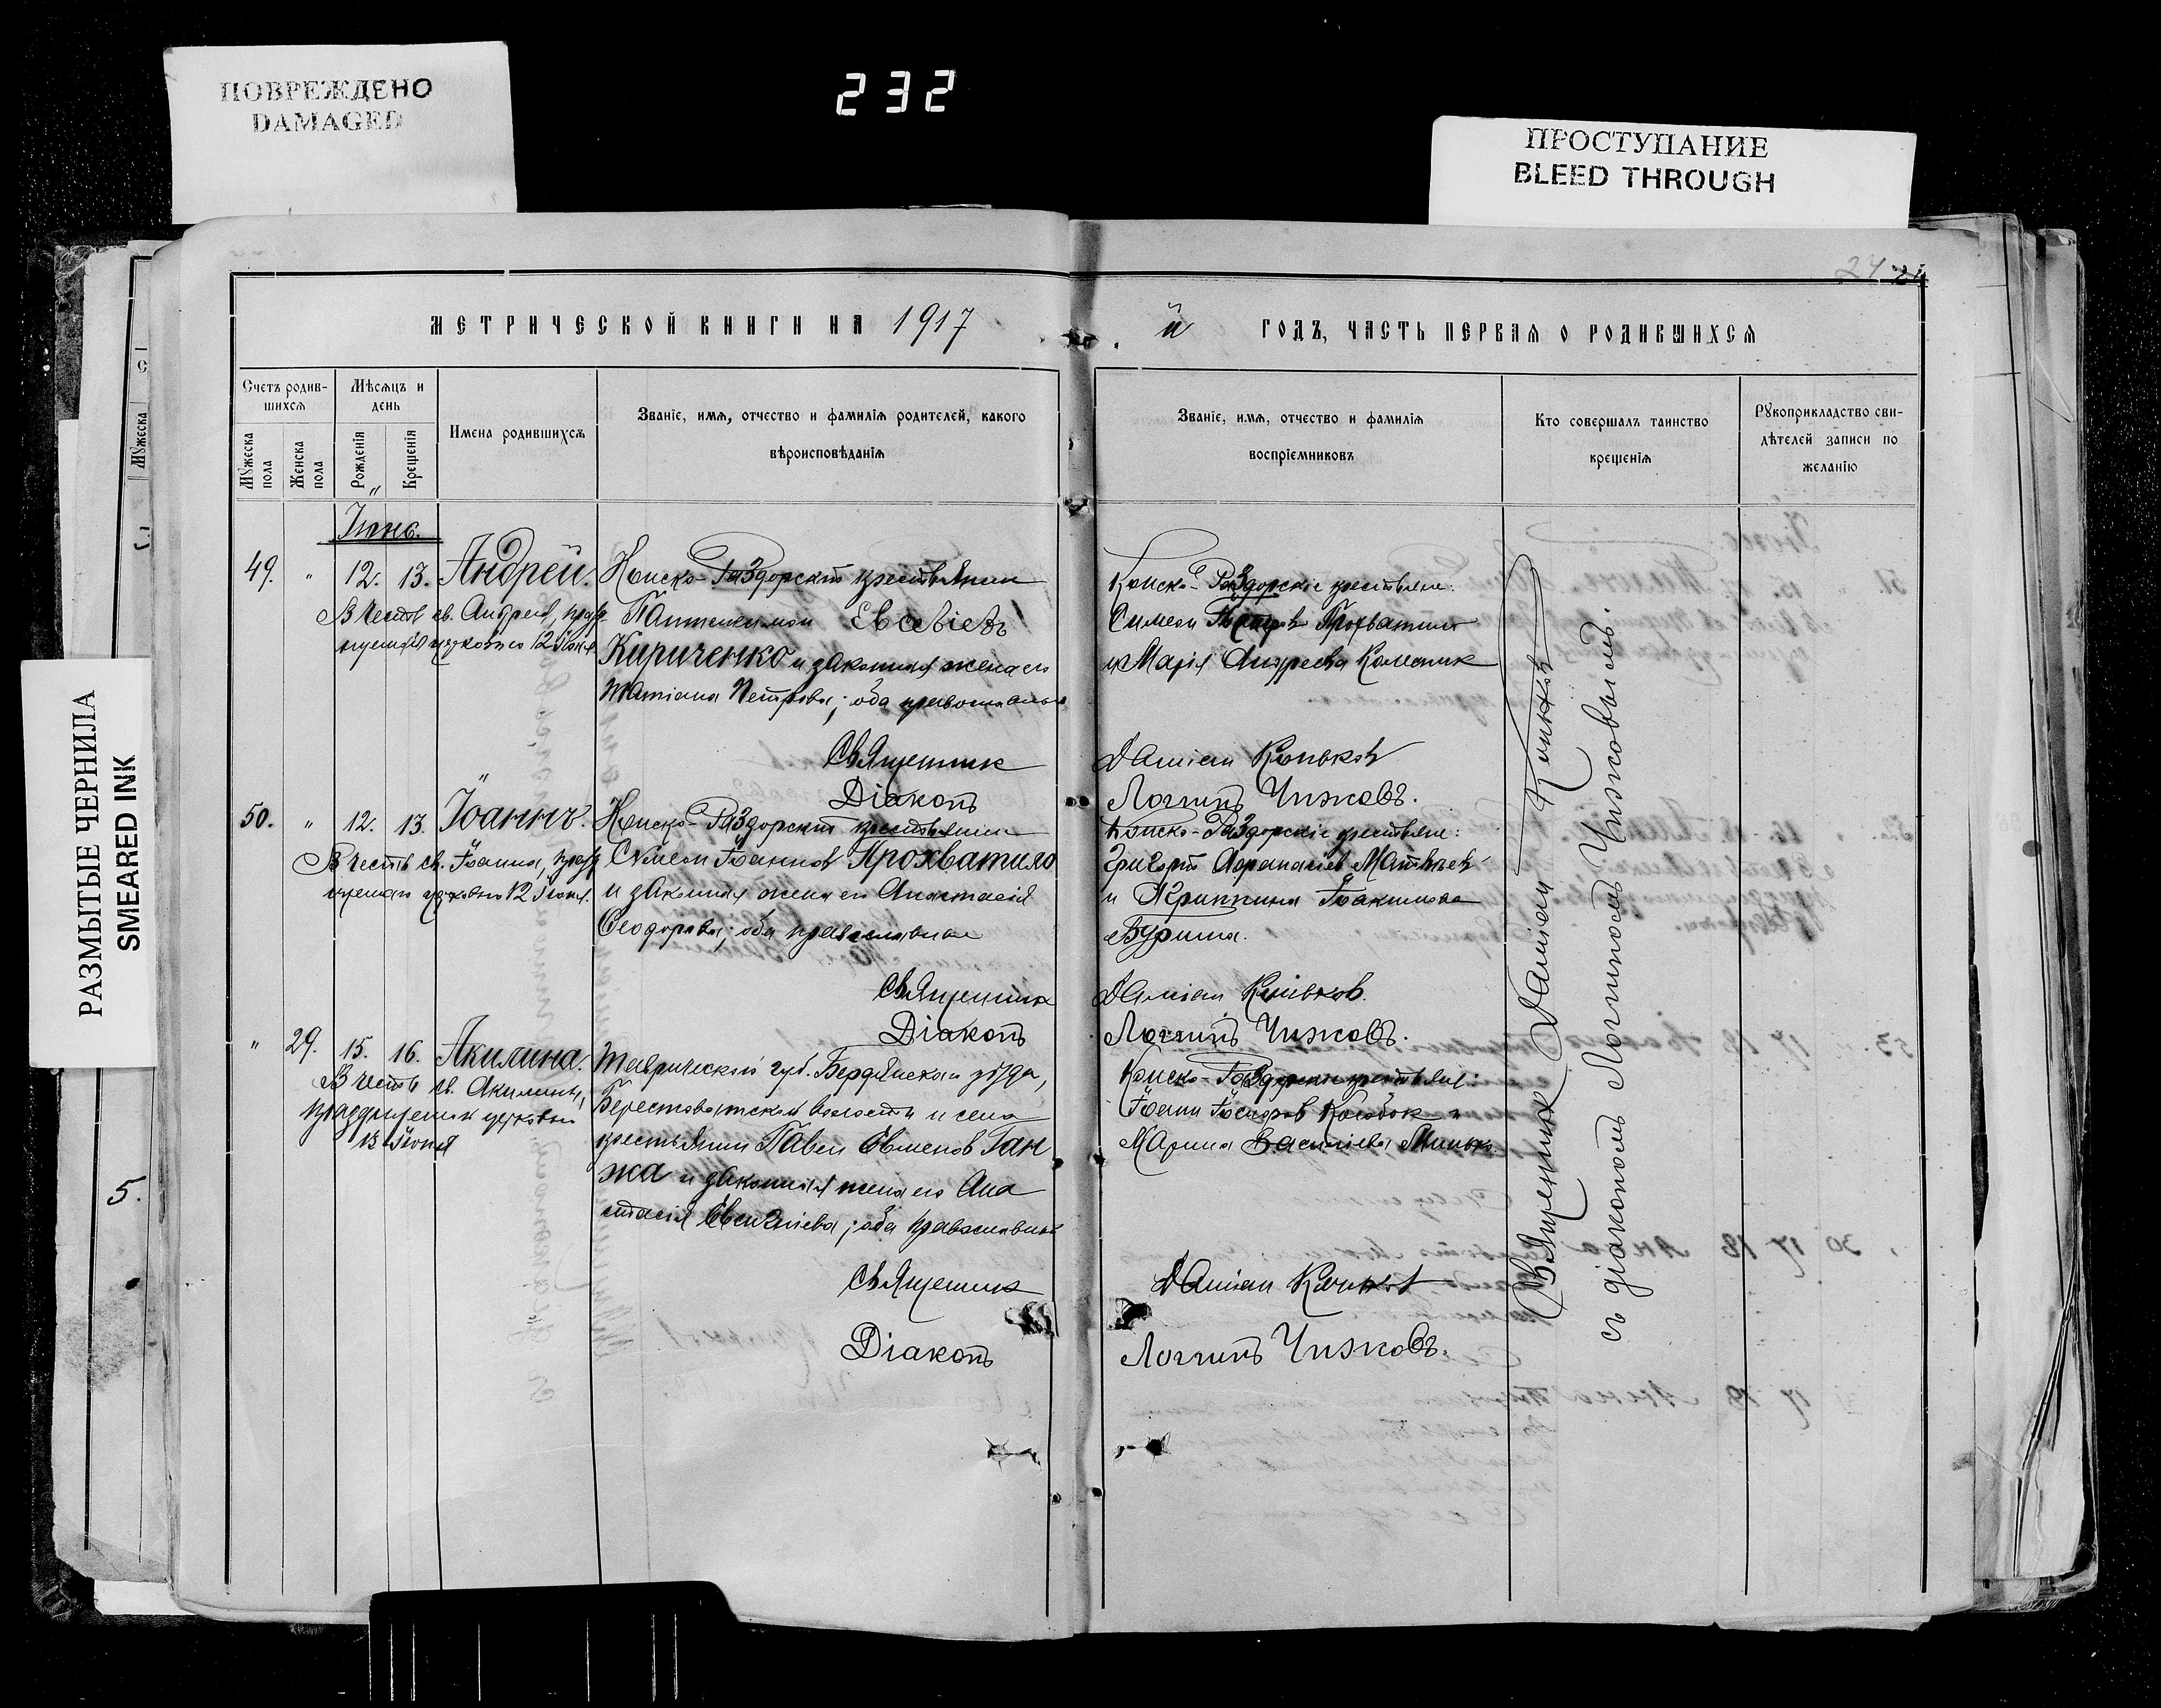 ПОВРЕЖДЕНО
DAMAGED
232
ПРОСТУПАНИЕ
BLEED THROUGH
РАЗМЫТЫЕ ЧЕРНИЛА
SMEARED INK
5.
24
МЕТРИЧЕСКОЙ КНИГИ НА 1917
й ГОДЪ, ЧАСТЬ ПЕРВАЯ О РОДИВШИХСЯ
Счетъ родив-
шихся
Мѣсяцъ и
день
Мужеска
пола
Женска
пола
Рожденія
Крещенія
Имена родившихся
Званіе, имя, отчество и фамилія родителей, какого
вѣроисповѣданія
Званіе, имя, отчество и фамилія
воспріємниковъ
Кто совершалъ таинство
крещенія
Рукоприкладство сви-
дѣтелей записи по
желанію
Іюнь.
49. " 12. 13. Андрей.
В честь св. Андрея, празд
нуемаго церковію 12 Іюня.
Конско-Раздорскій крестьянин
Пантелеимон Евсевіевъ
Кириченко и законная жена его
Татіана Петрова; оба православные
Конско-Раздорскіе крестьяне:
Симеон Петров Прохватило
и Марія Андреева
Священник Даміан Коньков
Діаконъ Логгинъ Чижовъ.
50. " 12. 13. Іоаннъ.
В честь св. Іоанна, празд
нуемаго церковью 12 Іюня.
Конско-Раздорскій крестьянин
Симеон Іоаннов Прохватило
и законная жена его Анастасія
Ѳеодорова; оба православные
Конско-Раздорскіе крестьяне:
Григорій Афанасіев Матвѣев
и Агриппина Іоакимова
Бурима.
Священник Даміан Коньков.
Діаконъ Логгинъ Чижовъ.
" 29. 15. 16. Акилина.
В честь св. Акилины,
празднуемой церковью
13 Іюня
Таврической губ. Бердянскаго уѣзда,
Берестоватской волости и села
крестьянин Павел Евменов Ган
жа и законная жена его Ана
стасія Евсигніева; оба православные
Конско-Раздорскіе крестьяне:
Іоанн Косободок и
Марина Васильева
Священник Даміан Коньков
Діаконъ Логгинъ Чижовъ.
Священник Даміан Коньков
съ діакономъ Логгиномъ Чижовымъ.